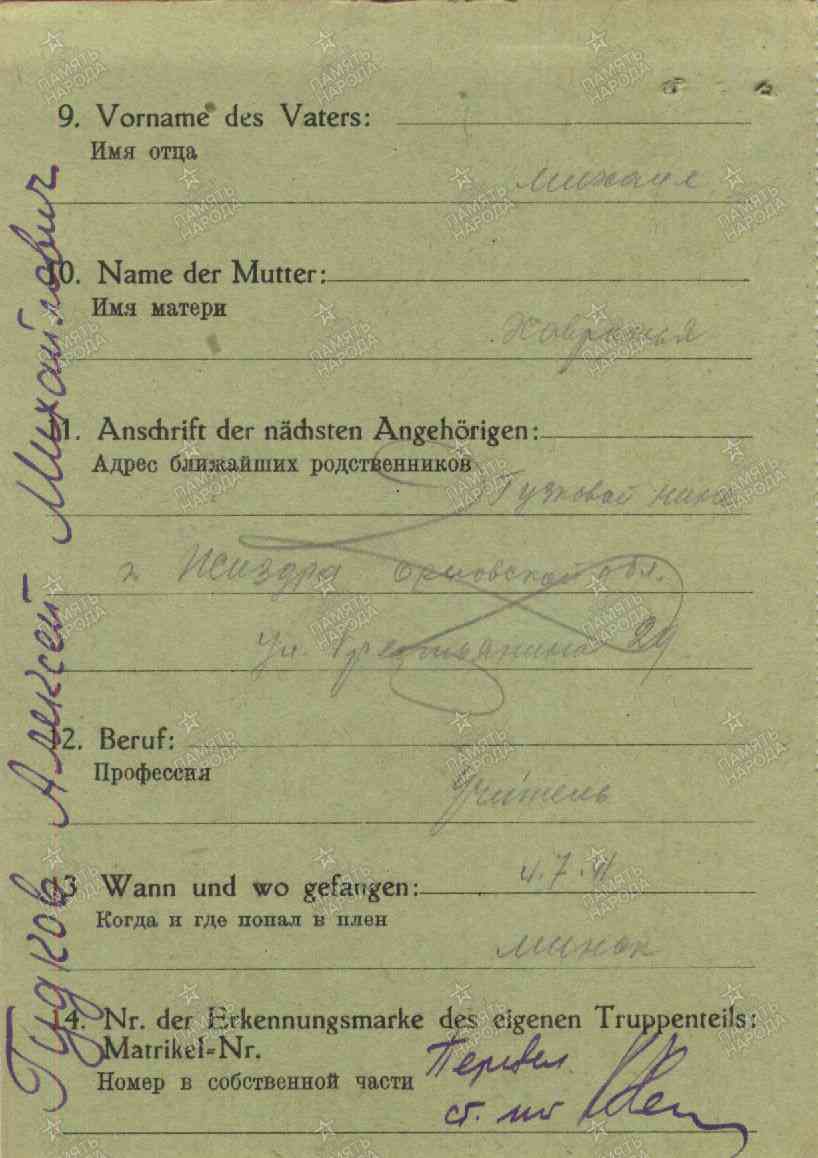 9. Vorname des Vaters:
Имя отца
Михаил
10. Name der Mutter:
Имя матери
Хавронья
11. Anschrift der nächsten Angehörigen:
Адрес ближайших родственников
Гудковой Нине
г. Жиздра Орловской обл.
ул. 29
12. Beruf:
Профессия
Учитель
13 Wann und wo gefangen:
4.7.41
Когда и где попал в плен
Минск
14. Nr. der Erkennungsmarke des eigenen Truppenteils:
Matrikel-Nr.
Номер в собственной части
Перевел
ст.
Гудков Алексей Михайлович
ПАМЯТЬ НАРОДА